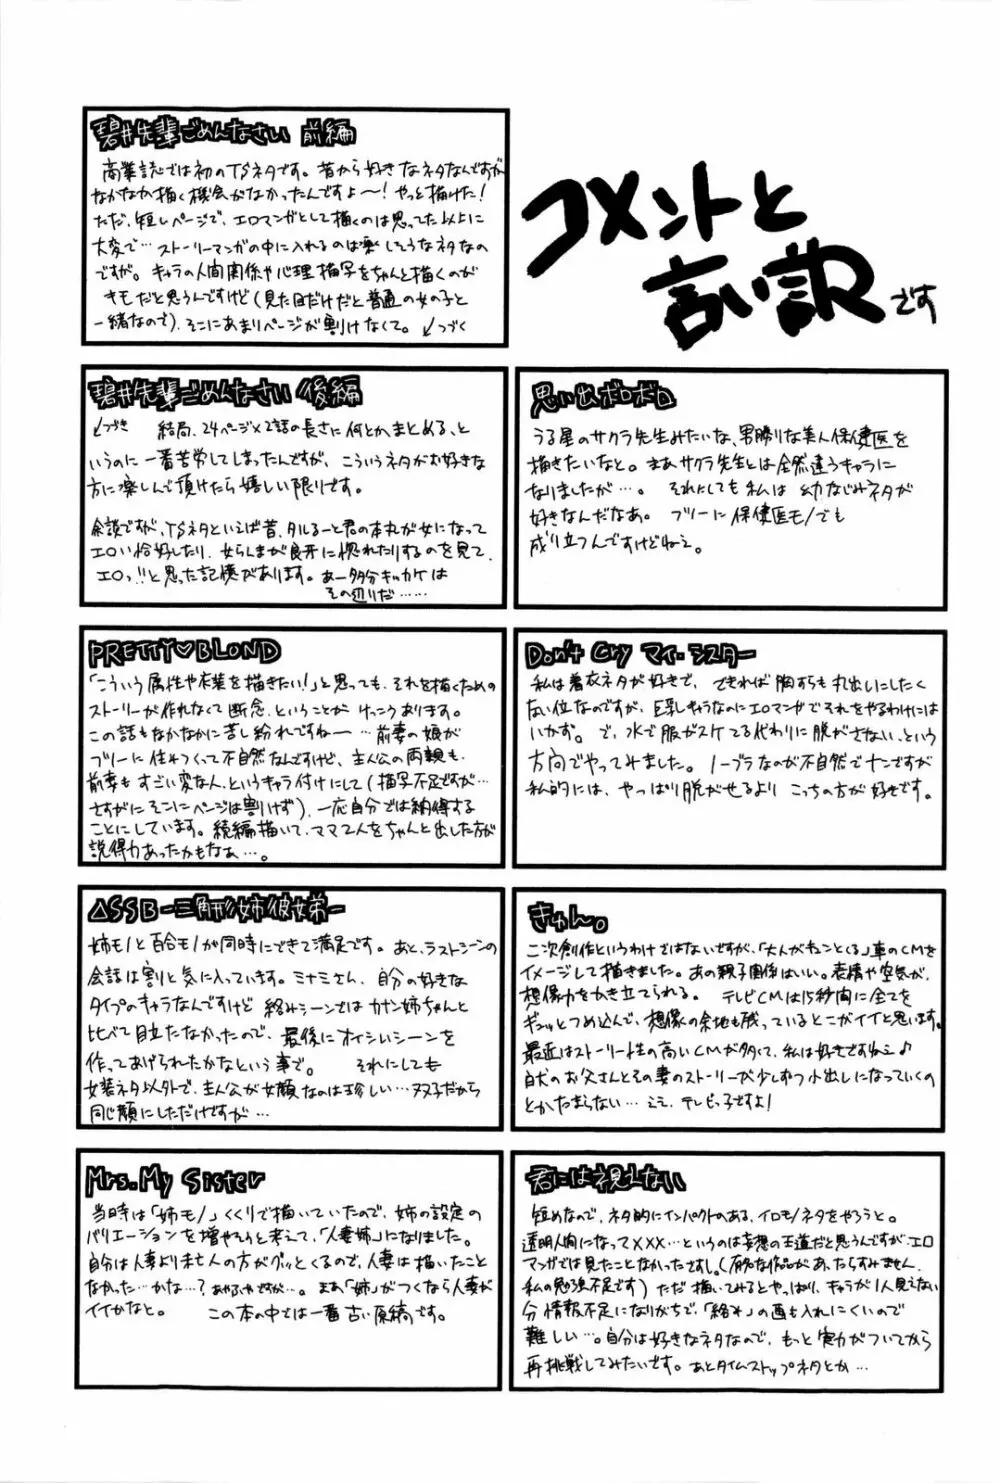 コメントと
言い訳です
碧井先輩ごめんなさい 前編
商業誌では初のTSネタです。昔から好きなネタなんですが
なかなか描く機会がなかったんですよ〜!やっと描けた!
ただ、短いページで、エロマンガとして描くのは思ってた以上に
大変で…ストーリーマンガの中に入れるのは楽しそうなネタなの
ですが。キャラの人間関係や心理描写をちゃんと描くのが
キモだと思うんですけど(見た目だけだと普通の女の子と
一緒なので)、そこにあまりページが割けなくて。↙つづく
碧井先輩ごめんなさい 後編
↘つづき 結局、24ページ×2話の長さに何とかまとめる、と
いうのに一番苦労してしまったんですが、こういうネタがお好きな
方に楽しんで頂けたら嬉しい限りです。
余談ですが、TSネタといえば昔、タルるーと君の本丸が女になって
エロい恰好したり、女らんまが良牙に惚れたりするのを見て、
エロっ!!と思った記憶があります。あー多分キッカケは
その辺りだ……
思い出ボロボロ
うる星のサクラ先生みたいな、男勝りな美人保健医を
描きたいなと。まあサクラ先生とは全然違うキャラに
なりましたが…。それにしても私は幼なじみネタが
好きなんだなあ。フツーに保健医モノでも
成り立つんですけどねえ。
PRETTY♡BLOND
「こういう属性や衣装を描きたい!」と思っても、それを描くための
ストーリーが作れなくて断念、ということがけっこうあります。
この話もなかなかに苦し紛れですねー…前妻の娘が
フツーに住みつくって不自然なんですけど、主人公の両親も、
前妻もすごい変な人、というキャラ付けにして(描写不足ですが…
さすがにそこにページは割けず)、一応自分では納得する
ことにしています。続編描いて、ママ2人をちゃんと出した方が
説得力あったかもなぁ…。
Don't Cry マイ・シスター
私は着衣ネタが好きで、できれば胸すらも丸出しにしたく
ない位なのですが、巨乳キャラなのにエロマンガでそれをやるわけには
いかず。で、水で服がスケてる代わりに脱がさない、という
方向でやってみました。ノーブラなのが不自然でナンですが
私的には、やっぱり脱がせるよりこっちの方が好きです。
△SSB-三角形姉彼女弟-
姉モノと百合モノが同時にできて満足です。あと、ラストシーンの
会話は割と気に入っています。ミナミさん、自分の好きな
タイプのキャラなんですけど絡みシーンではカナン姉ちゃんと
比べて目立たなかったので、最後にオイシいシーンを
作ってあげられたかなという事で。それにしても
女装ネタ以外で、主人公が女顔なのは珍しい…双子だから
同じ顔にしただけですが…
きゅん。
二次創作というわけではないですが、「大人がキュンとくる」車のCMを
イメージして描きました。あの親子関係はいい。表情や空気が、
想像力をかき立てられる。テレビCMは15秒間に全てを
ギュッとつめ込んで、想像の余地も残っているとこがイイと思います。
最近はストーリー性の高いCMが多くて、私は好きですねえ♪
白犬のお父さんとその妻のストーリーが少しずつ小出しになっていくの
とかたまらない…ええ、テレビっ子ですよ!
Mrs.My Sister
当時は「姉モノ」くくりで描いていたので、姉の設定の
バリエーションを増やそうと考えて、「人妻姉」になりました。
自分は人妻より未亡人の方がグッとくるので、人妻は描いたこと
なかった…かな…?あやふやですが…。まあ「姉」がつくなら人妻が
イイかなと。この本の中では一番古い原稿です。
君には視えない
短めなので、ネタ的にインパクトのある、イロモノネタをやろうと。
透明人間になって×××…というのは妄想の王道だと思うんですが、エロ
マンガでは見たことなかったですし。(有名な作品があったらすみません、
私の勉強不足です)ただ描いてみるとやっぱり、キャラが1人見えない
分情報不足になりがちで、「絡み」の画も入れにくいので
難しい…。自分は好きなネタなので、もっと実力がついてから
再挑戦してみたいです。あとタイムストップネタとか…